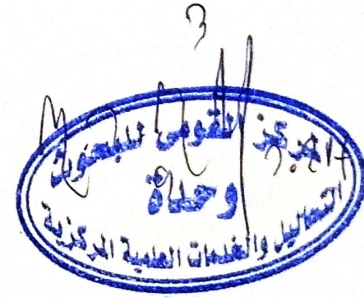 3
المركز القومى للبحوث
وحدة
التحاليل والخدمات العلمية المركزية